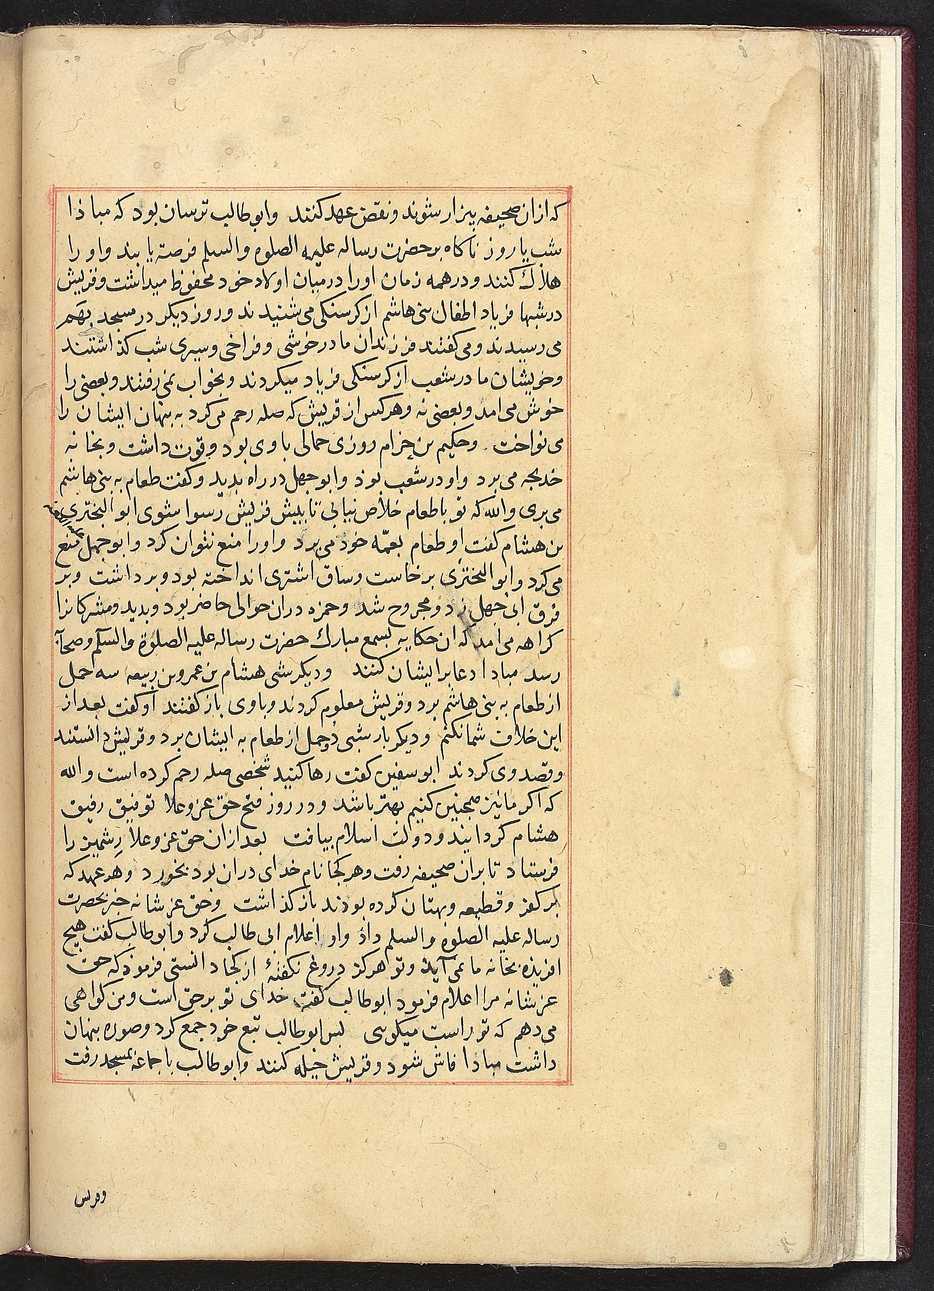 که ازان صحیفه بیزار شوند ونقض عهد کنند وابوطالب ترسان بود که مباذا
شب یا روز ناکاه بر حضرت رساله علیه الصلوه والسلم فرصة یابند واو را
هلاک کنند ودر همه زمان اورا درمیان اولاد خود محفوظ میداشت وقریش
درشبها فریاد اطفال بنی هاشم ازکرسنکی می شنیدند وروز دیکر در مسجد بهم
می رسیدند ومی کفتند فرزندان ما درخوشی وفراخی وسیری شب کذاشتند
وخویشان ما درشعب ازکرسنکی فریاد میکردند وبخواب نمی رفتند وبعضی را
خوش می امد وبعضی نه وهرکس از قریش که صله رحم می کرد به پنهان ایشان را
می نواخت . وحکیم بن حزام روزی حمالی باوی بود وقوت داشت وبخانه
خدیجه می برد واو درشعب بوذ وابوجهل در راه بدید وکفت طعام به بنی هاشم
می بری والله که تو باطعام خلاص نیابی تا پیش قریش رسوا شوی ابوالبختری
بن هشام کفت او طعام بعمّه خود می برد واورا منع نتوان کرد وابوجهل منع
می کرد وابوالبختری برخاست وساق اشتری انداخته بود وبرداشت وبر
فرق ابی جهل زد ومجروح شد وحمزه دران حوالی حاضر بود وبدید ومشرکانرا
کراهه می امد که ان حکایه بسمع مبارک حضرت رساله علیه الصلوة والسلم وصحابه
رسد مباذا دعا برایشان کنند ودیکر شبی هشام بن عمرو بن ربیعه سه حمل
از طعام به بنی هاشم برد وقریش معلوم کردند وباوی باز کفتند اوکفت بعد از
این خلاف شما نکنم ودیکر بار شبی دوحمل از طعام به ایشان برد وقریش دانستند
وقصد وی کردند ابوسفین کفت رها کنید شخصی صله رحم کرده است والله
که اکر ما نیز همچنین کنیم بهتر باشد ودر روز فتح حق عز وعلا توفیق رفیق
هشام کردانیند ودولت اسلام بیافت بعد ازان حق عز وعلا رشمیز را
فرستاد تا بران صحیفه رفت وهر کجا نام خدای دران بود بخورد وهر عهد که
بر کفر وقطیعه وبهتان کرده بودند باز کذاشت وحق عز شانه خبر بحضرت
رساله علیه الصلوة والسلم داذ واو اعلام ابی طالب کرد وابوطالب کفت هیچ
افریذه بخانه ما نمی آید وتو هرکز دروغ نکفتهٔ از کجا دانستی فرموذ که حق
عز شانه مرا اعلام فرمود ابوطالب کفت خدای تو بر حق است ومن کواهی
می دهم که تو راست میکویی پس ابوطالب تبع خود جمع کرد وصوره پنهان
داشت مباذا فاش شود وقریش حیله کنند وابوطالب با جماعة بمسجد رفت
وقریش